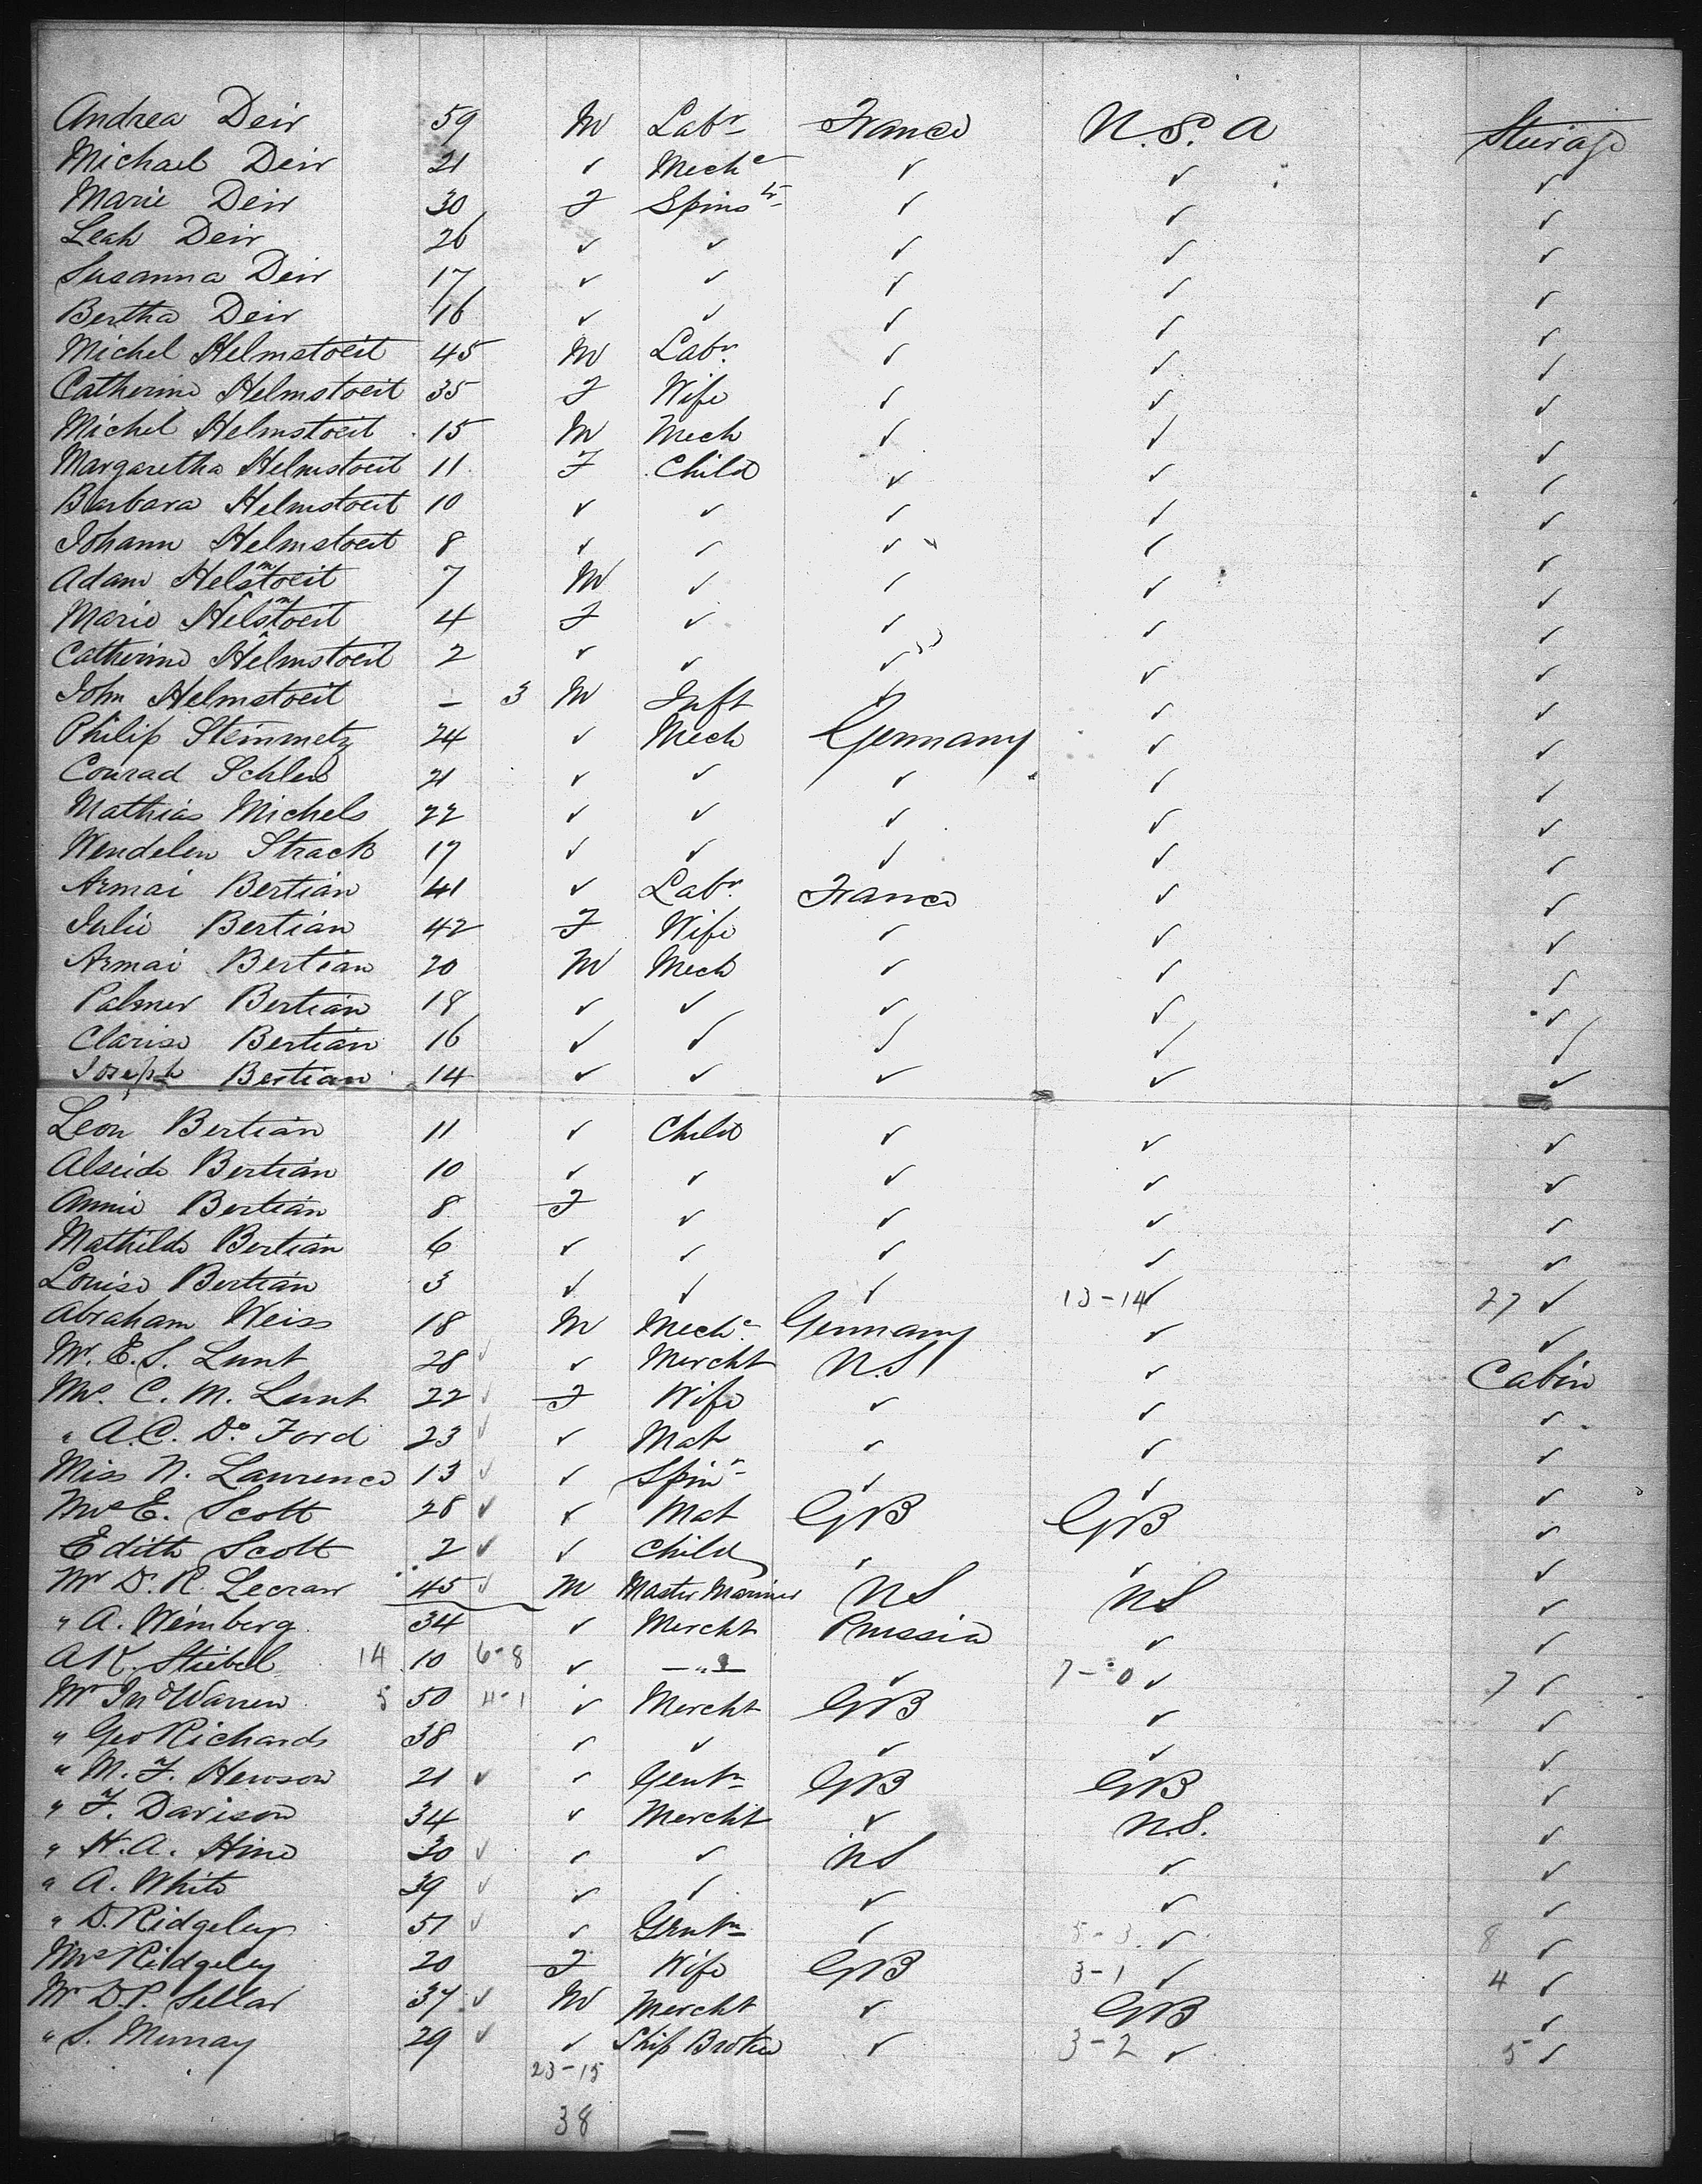 Andrea Deir 59 M Labr France U.S.A Steerage
Michael Deir 21 ✓ Mechc ✓ ✓ ✓
Marie Deir 30 F Spinstr ✓ ✓ ✓
Leah Deir 26 ✓ ✓ ✓ ✓ ✓
Susanna Deir 17 ✓ ✓ ✓ ✓ ✓
Bertha Deir 16 ✓ ✓ ✓ ✓ ✓
Michel Helmstoeit 45 M Labr. ✓ ✓ ✓
Catherine Helmstoeit 35 F Wife ✓ ✓ ✓
Michel Helmstoeit 15 M Mech ✓ ✓ ✓
Margaretha Helmstoeit 11 F Child ✓ ✓ ✓
Barbara Helmstoeit 10 ✓ ✓ ✓ ✓ ✓
Johann Helmstoeit 8 ✓ ✓ ✓ ✓ ✓
Adam Helmstoeit 7 M ✓ ✓ ✓ ✓
Marie Helmstoeit 4 F ✓ ✓ ✓ ✓
Catherine Helmstoeit 2 ✓ ✓ ✓ ✓ ✓
John Helmstoeit – 3 M Inft ✓ ✓ ✓
Philip Steinmetz 24 ✓ Mech Germany ✓ ✓
Conrad 21 ✓ ✓ ✓ ✓ ✓
Mathias Michels 22 ✓ ✓ ✓ ✓ ✓
Wendelen Strack 17 ✓ ✓ ✓ ✓ ✓
Armai Bertian 41 ✓ Labr. France ✓ ✓
Julie Bertian 42 F Wife ✓ ✓ ✓
Armai Bertian 20 M Mech ✓ ✓ ✓
Palmer Bertian 18 ✓ ✓ ✓ ✓ ✓
Clarise Bertian 16 ✓ ✓ ✓ ✓ ✓
Joseph Bertian 14 ✓ ✓ ✓ ✓ ✓
Leon Bertian 11 ✓ Child ✓ ✓ ✓
Alseide Bertian 10 ✓ ✓ ✓ ✓ ✓
Annie Bertian 8 F ✓ ✓ ✓ ✓
Mathilde Bertian 6 ✓ ✓ ✓ ✓ ✓
Louise Bertian 3 ✓ ✓ ✓ 13-14 ✓ 27 ✓
Abraham Weiss 18 M Mechc Germany ✓ ✓
Mr. E. S. Lunt 28 ✓ ✓ Mercht U.S ✓ Cabin
Mrs. C. M. Lunt 22 ✓ F Wife ✓ ✓ ✓
" A. C. Do. Ford 23 ✓ ✓ Mat ✓ ✓ ✓
Miss N. Lawrence 13 ✓ ✓ Spinr ✓ ✓ ✓
Mrs E. Scott 28 ✓ ✓ Mat GB GB ✓
Edith Scott 2 ✓ ✓ Child ✓ ✓ ✓
Mr D. R. Lecraw 45 ✓ M Master Mariner US US ✓
" A. Weinberg 34 ✓ Mercht Prussia ✓ ✓
A K. Stiebel 14 10 6-8 ✓ —"— ✓ 7-0 ✓ 7 ✓
Mr Jno Warren 5 50 4-1 ✓ Mercht GB ✓ ✓
" Geo Richards 38 ✓ ✓ ✓ ✓ ✓
" M. F. Hewson 21 ✓ ✓ Gentn GB GB ✓
" F. Davison 34 ✓ Mercht ✓ U.S. ✓
" H. A. Hine 30 ✓ ✓ ✓ US ✓ ✓
" A. White 39 ✓ ✓ ✓ ✓ ✓ ✓
" D. Ridgeley 51 ✓ ✓ Gentn ✓ 5-3 ✓ 8 ✓
Mrs Ridgeley 20 F Wife GB 3-1 ✓ 4 ✓
Mr D. P. Sellar 37 ✓ M Mercht ✓ GB ✓
" S. Murray 29 ✓ ✓ Ship Broker ✓ 3-2 ✓ 5 ✓
23-15
38